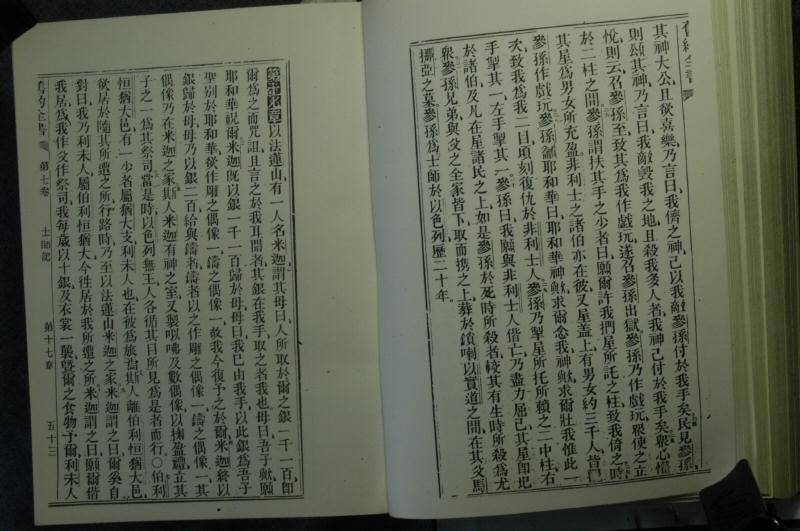 舊約全書
其神大公且欲喜樂乃言曰我儕之神已以我敵參孫付於我手矣民見參孫
則頌其神乃言曰我敵毀我之地且殺我多人者我神已付於我手矣眾心懽
悅則云召參孫至致其為我作戲玩遂召參孫出獄參孫乃作戲玩眾使之立
於二柱之間參孫謂扶其手之少者曰願爾許我捫屋所託之柱致我倚之時
其屋為男女所充盈非利士之諸伯亦在彼又屋蓋上有男女約三千人皆
參孫作戲玩參孫籲耶和華曰耶和華神歟求爾念我神歟求爾壯我惟此一
次致我為我二目頃刻復仇於非利士人參孫乃擘屋所托所賴之二中柱右
手擘其一左手擘其一參孫曰我願與非利士人偕亡乃盡力屈己其屋即圮
於諸伯及凡在屋諸民之上如是參孫於死時所殺者較其有生時所殺為尤
眾參孫兄弟與父之全家皆下取而攜之上葬於鎖喇以實道之間在其父馬
挪亞之墓參孫為士師於以色列歷二十年
第十七章以法蓮山有一人名米迦謂其母曰人所取於爾之銀一千一百即
爾為之而咒詛且言之於我耳聞者其銀在我手取之者我也母曰吾子歟願
耶和華祝爾米迦既以銀一千一百歸於母母曰我已由我手以此銀為吾子
聖別於耶和華欲作雕之偶像一鑄之偶像一故我今復予之於爾米迦終以
銀歸於母母乃以銀二百給與鑄者鑄者以之作雕之偶像一鑄之偶像一其
偶像乃在米迦之家斯人米迦有神之室又製以咈及數偶像以摛盈禮立其
子之一為其祭司當是時以色列無王人各循其目所見為是者而行○伯利
恒猶大邑有一少者屬猶大支利未人也在彼為旅焉斯人離伯利恒猶大邑
欲居於隨其所遭之所行路時乃至以法蓮山米迦之家米迦謂之曰爾奚自
對曰我乃利未人屬伯利恒猶大今往居於我所遭之所米迦謂之曰願爾偕
我居為我作父作祭司我每歲以十銀及衣裳一襲暨爾之食物予爾利未人
舊約全書 第七卷 士師記 第十七章 五十三